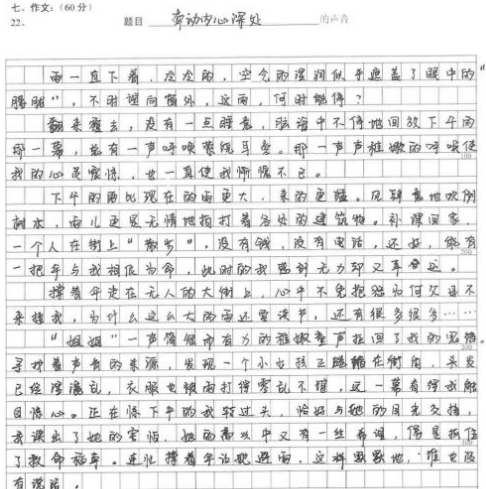 七、作文：（60分）
22、 题目 牵动内心深处 的声音
雨一直下着，冷冷的，空气的湿润似乎遮盖了眼中的“
朦胧”，不时望向窗外，这雨，何时能停？
翻来覆去，没有一点睡意，脑海中不停地回放下午的
那一幕，总有一声呼唤萦绕耳旁。那一声声稚嫩的呼唤使
我的心灵震惊，也一直使我懊恼不已。
下午的雨比现在的雨更大，来的更猛。风肆意地吹倒
树木，雨儿更是无情地拍打着各处的建筑物。补课回家，
一个人在街上“散步”，没有钱，没有电话，还好，能有
一把伞与我相依为命，此时的我感到无力却又幸运。
撑着伞走在无人的大街上，心中不免抱怨为何父母不
来接我，为什么这么大的雨还要读书，还有很多很多……
“姐姐”一声简短而有力的稚嫩童声拉回了我的思绪。
寻找着声音的来源，发现一个小女孩正蜷缩在街角，头发
已经湿漉乱，衣服也被雨打得零乱不堪，这一幕看得我触
目惊心。正在惊下中的我转过头，恰好与她的目光交接，
我读出了她的害怕，她的中又有一丝希望，像是抓住
了救命稻草。连忙撑着伞让她避雨，这样默默地，谁也没
有说话。